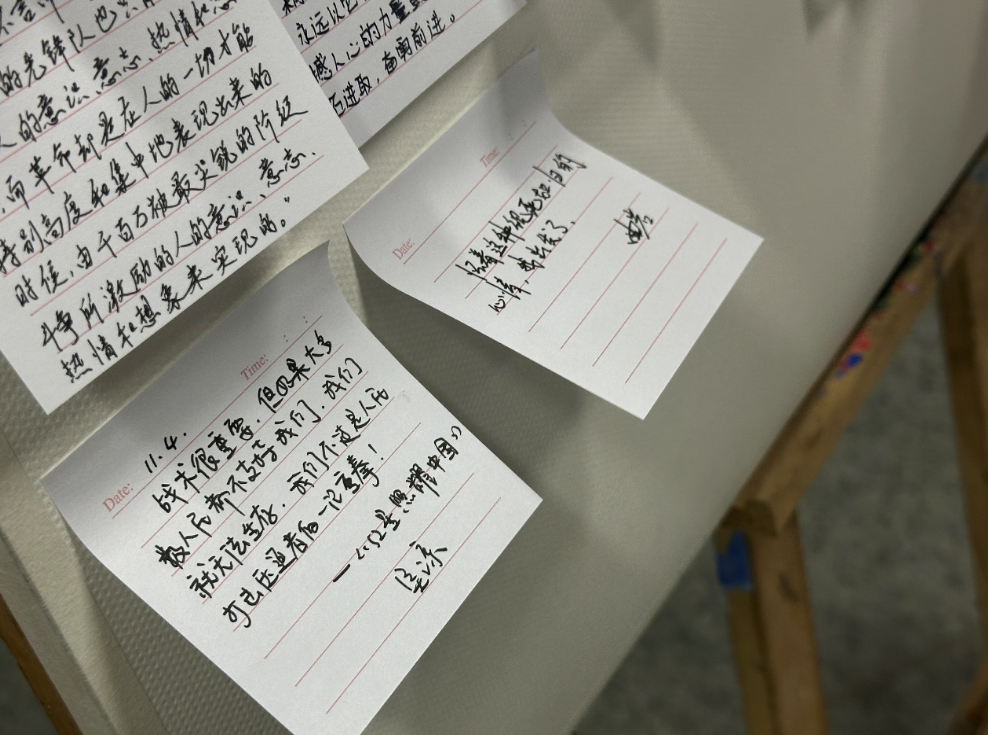 的先锋队也只有
人的意识、意志、热情和想
而革命却是在人的一切才能
特别高度和集中地表现出来的
时候，由千百万被最尖锐的阶级
斗争所激励的人的意识、意志、
热情和想象来实现的。”
永远以
撼人心的力量
进取，奋勇前进。
Time: : :
Date:
怀着这种视死如归的
心情，我出发了
Time: : :
Date: 11.4.
战术很重要，但如果大多
数人民都不支持我们，我们
就无法生存。我们不过是人民
打击压迫者的一记重拳！
——《红星照耀中国》